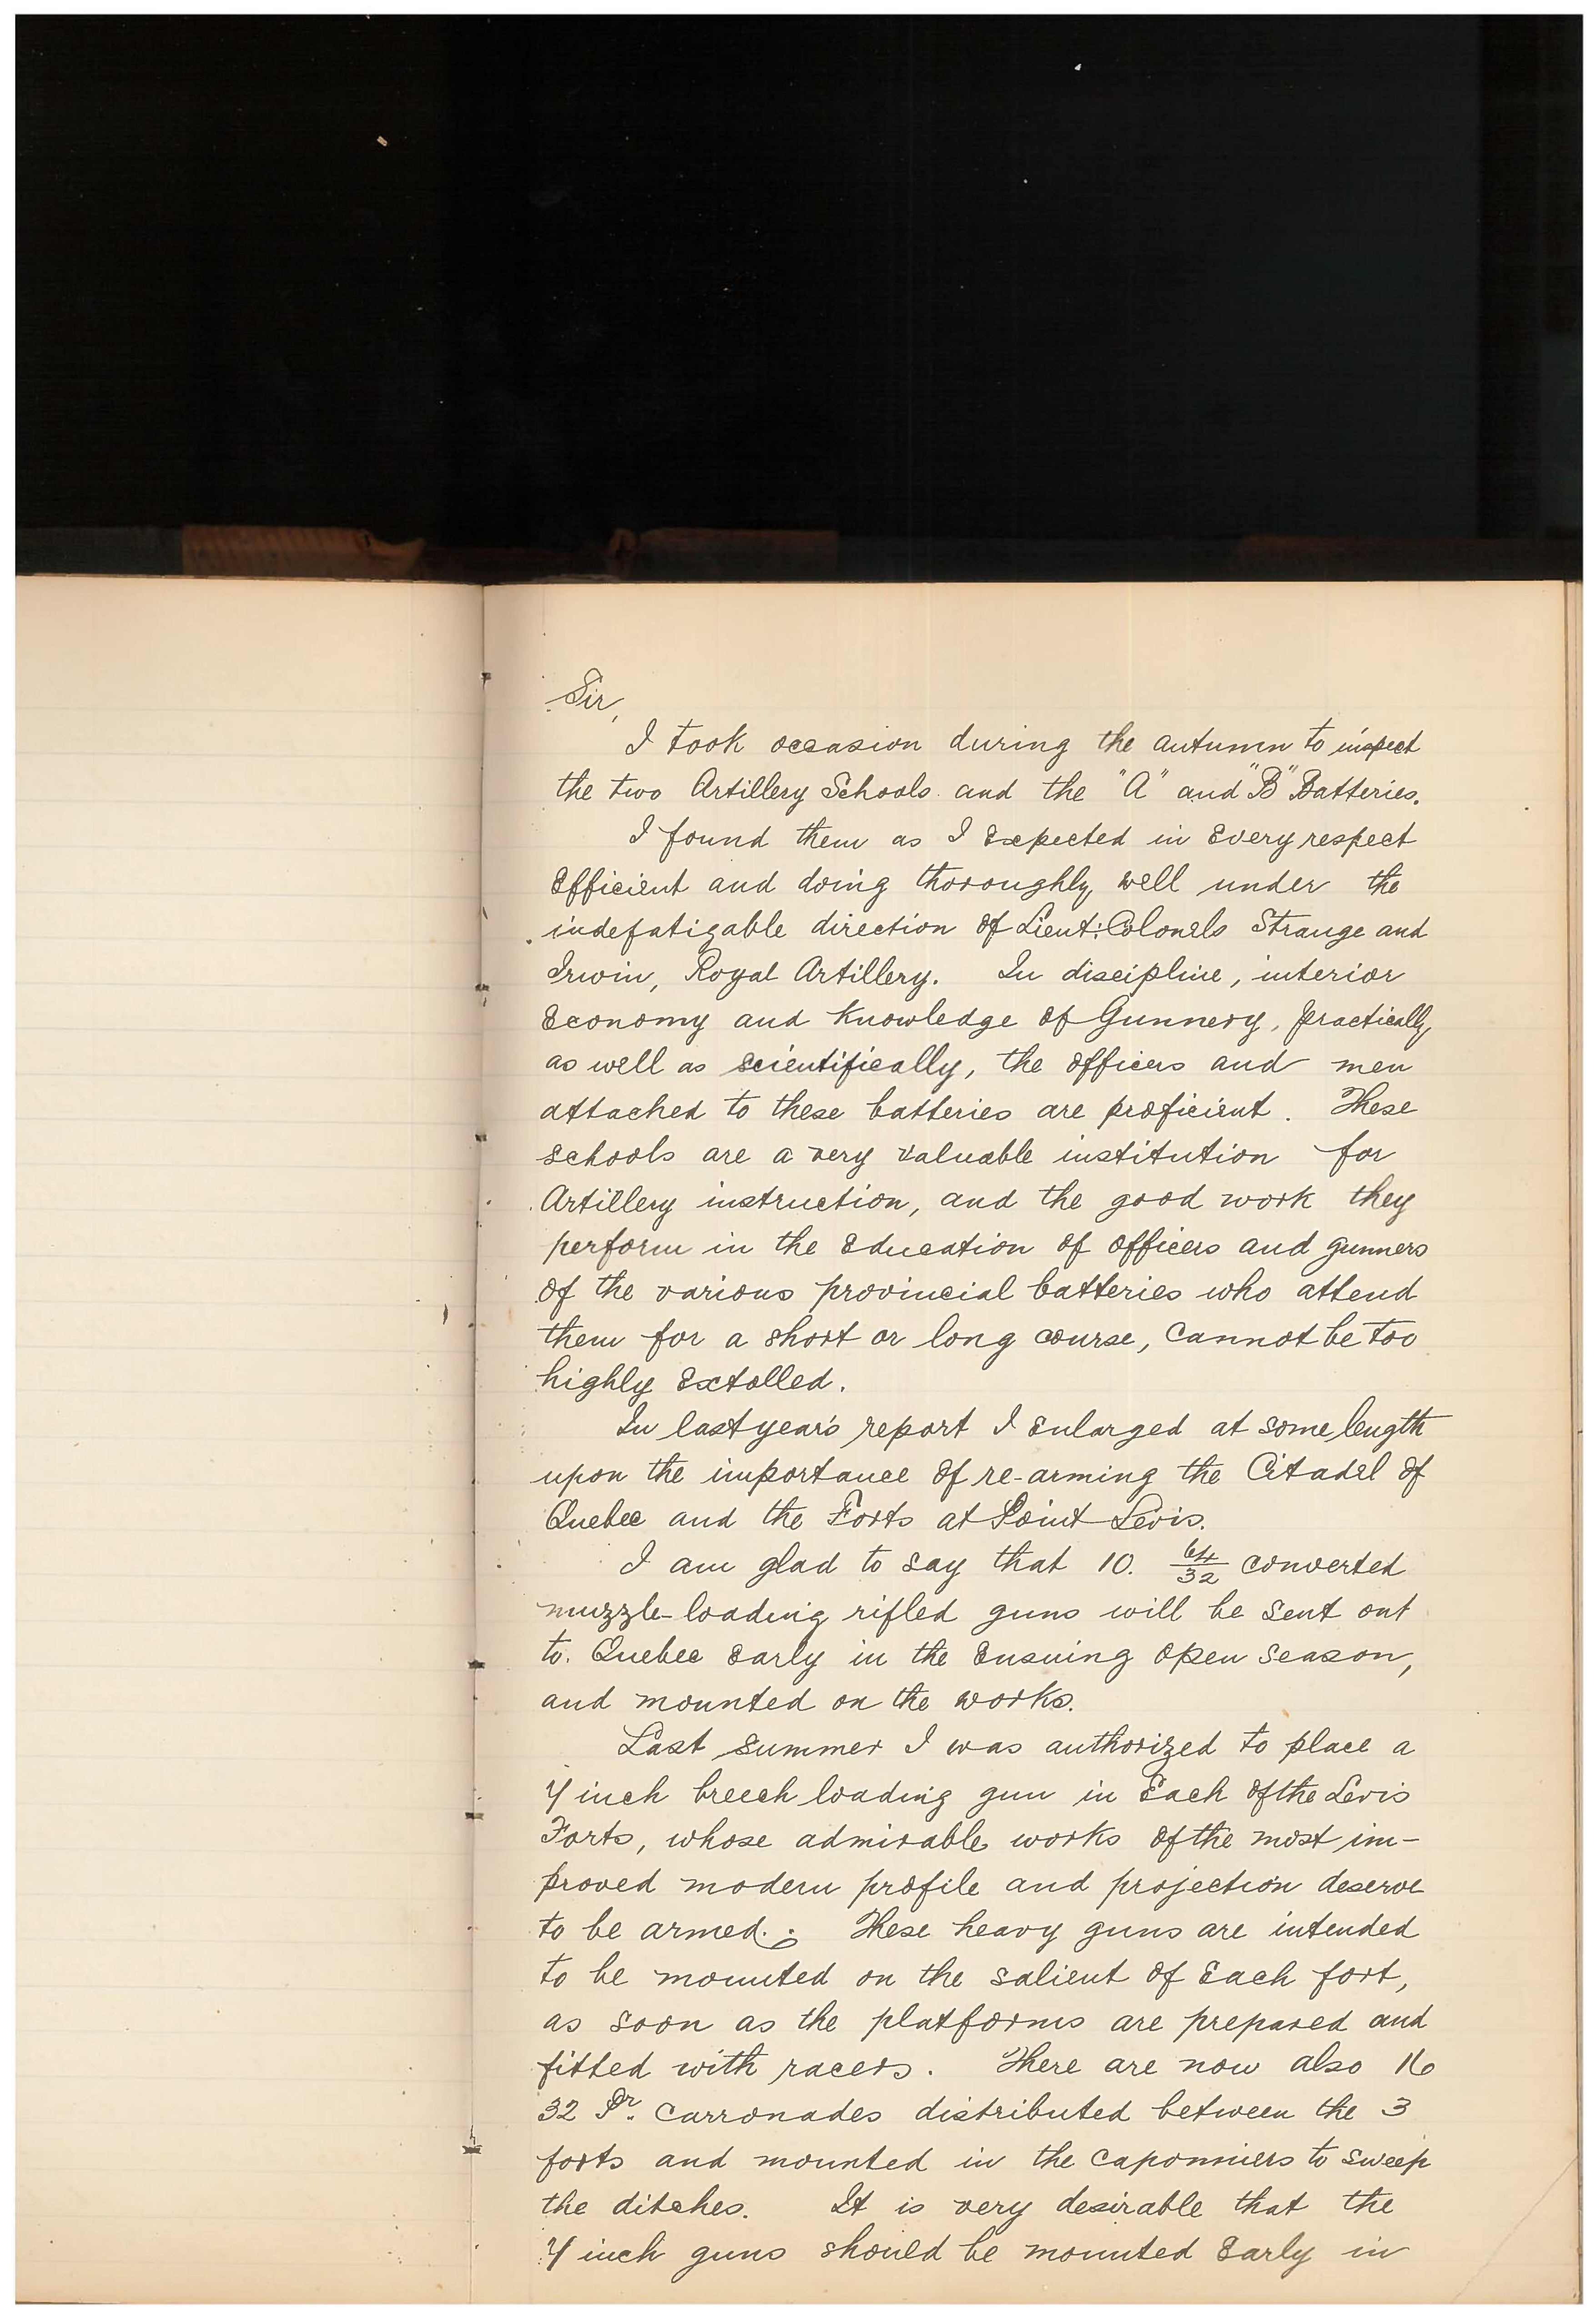 Sir,
I took occasion during the autumn to inspect
the two Artillery Schools and the "A" and "B" Batteries.
I found them as I expected in every respect
efficient and doing thoroughly well under the
indefatigable direction of Lieut: Colonels Strange and
Irwin, Royal Artillery. In discipline, interior
economy and knowledge of Gunnery, practically
as well as scientifically, the officers and men
attached to these batteries are proficient. These
schools are a very valuable institution for
Artillery instruction, and the good work they
perform in the education of officers and gunners
of the various provincial batteries who attend
them for a short or long course, cannot be too
highly extolled.
In last year's report I enlarged at some length
upon the importance of re-arming the Citadel of
Quebec and the Forts at Point Levis.
I am glad to say that 10. 64/32 converted
muzzle-loading rifled guns will be sent out
to. Quebec early in the ensuing open season,
and mounted on the works.
Last summer I was authorized to place a
7 inch breech loading gun in each of the Levis
Forts, whose admirable works of the most im-
proved modern profile and projection deserve
to be armed. These heavy guns are intended
to be mounted on the salient of each fort,
as soon as the platforms are prepared and
fitted with racers. There are now also 16
32 Pr. carronades distributed between the 3
forts and mounted in the caponniers to sweep
the ditches. It is very desirable that the
7 inch guns should be mounted early in